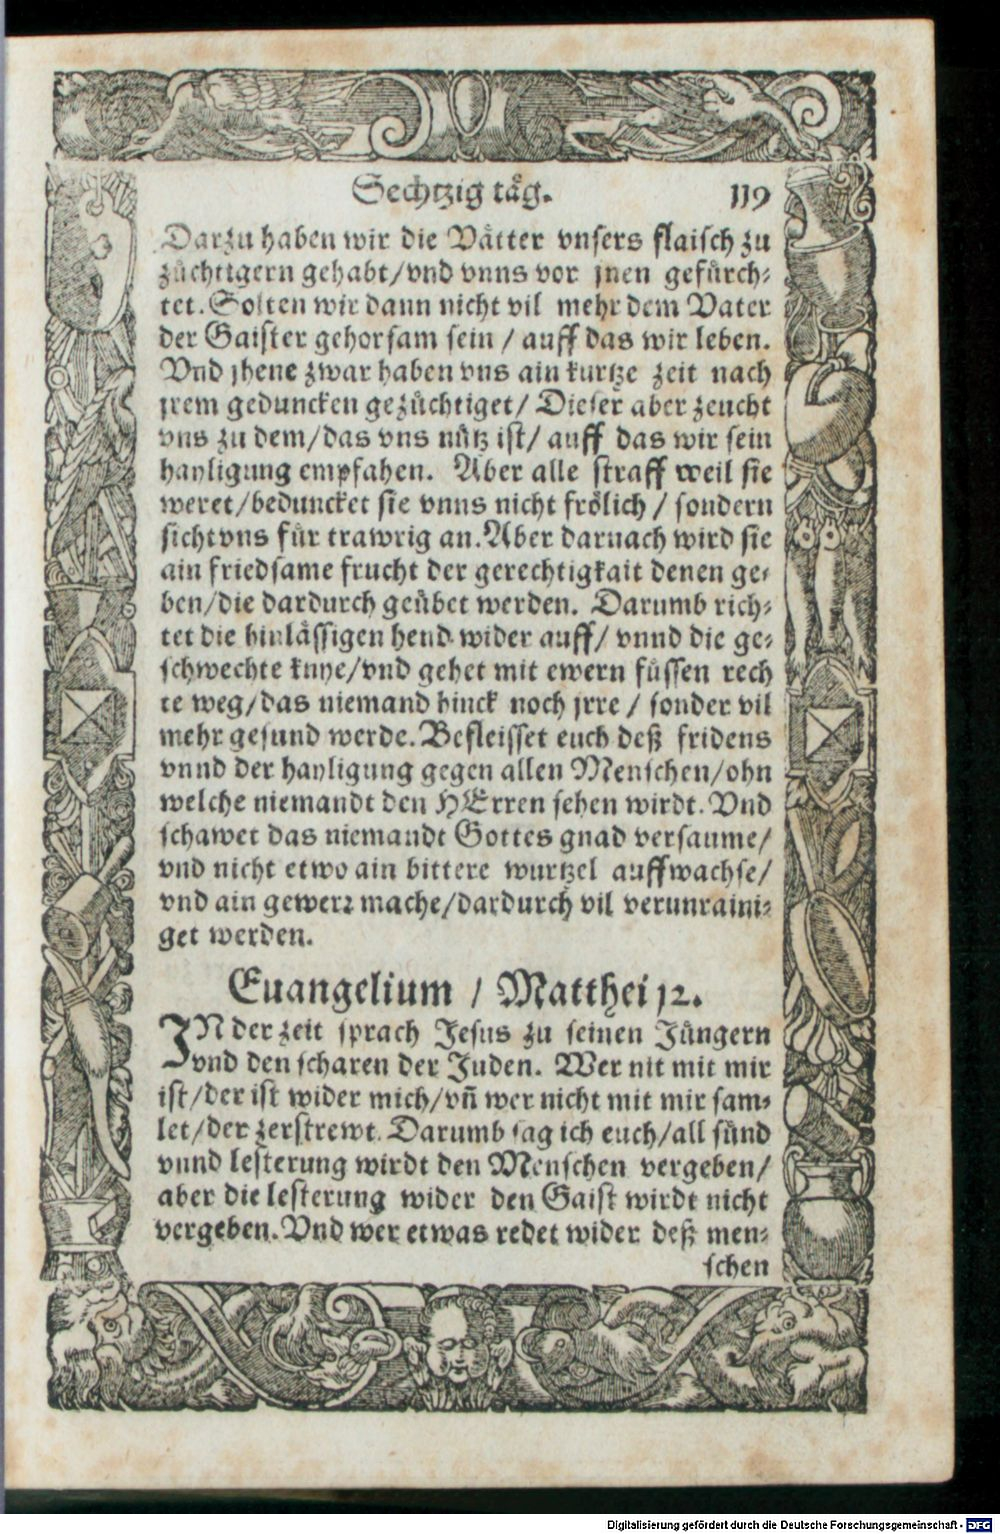 Sechtzig täg. 119
Darzu haben wir die Vätter vnsers flaisch zu
züchtigern gehabt/vnd vnns vor jnen gefürch⸗
tet. Solten wir dann nicht vil mehr dem Vater
der Gaister gehorsam sein / auff das wir leben.
Vnd jhene zwar haben vns ain kurtze zeit nach
jrem geduncken gezüchtiget/ Dieser aber zeucht
vns zu dem/das vns nütz ist/ auff das wir sein
hayligung empfahen. Aber alle straff weil sie
weret/beduncket sie vnns nicht frölich / sondern
sicht vns für trawrig an. Aber darnach wird sie
ain friedsame frucht der gerechtigkait denen ge⸗
ben/die dardurch geübet werden. Darumb rich⸗
tet die hinlässigen hend wider auff/ vnnd die ge⸗
schwechte knye/vnd gehet mit ewern füssen rech
te weg/das niemand hinck noch jrre / sonder vil
mehr gesund werde. Befleisset euch deß fridens
vnnd der hayligung gegen allen Menschen/ohn
welche niemandt den HErren sehen wirdt. Vnd
schawet das niemandt Gottes gnad versaume/
vnd nicht etwo ain bittere wurtzel auffwachse/
vnd ain gewerr mache/dardurch vil verunraini⸗
get werden.
Euangelium / Matthei 12.
IN der zeit sprach Jesus zu seinen Jüngern
vnd den scharen der Juden. Wer nit mit mir
ist/der ist wider mich/vñ wer nicht mit mir sam⸗
let/der zerstrewt. Darumb sag ich euch/all sünd
vnnd lesterung wirdt den Menschen vergeben/
aber die lesterung wider den Gaist wirdt nicht
vergeben. Vnd wer etwas redet wider deß men⸗
schen
Digitalisierung gefördert durch die Deutsche Forschungsgemeinschaft - DFG